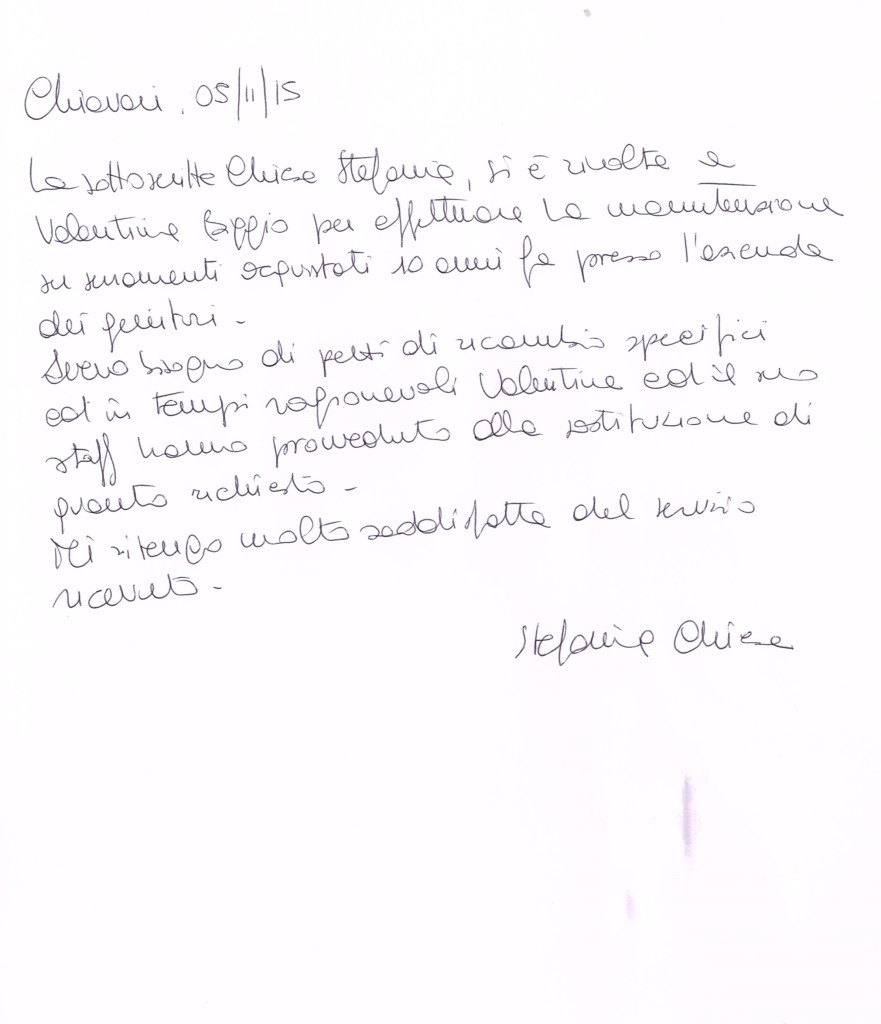 Chiavari, 05/11/15
La sottoscritta Chiesa Stefania, si è rivolta a
Valentina per effettuare la manutenzione
su serramenti acquistati 10 anni fa presso l'azienda
dei genitori -
Avevo bisogno di pezzi di ricambio specifici
ed in tempi ragionevoli Valentina ed il suo
staff hanno provveduto alla sostituzione di
quanto richiesto -
Mi ritengo molto soddisfatta del servizio
ricevuto -
Stefania Chiesa